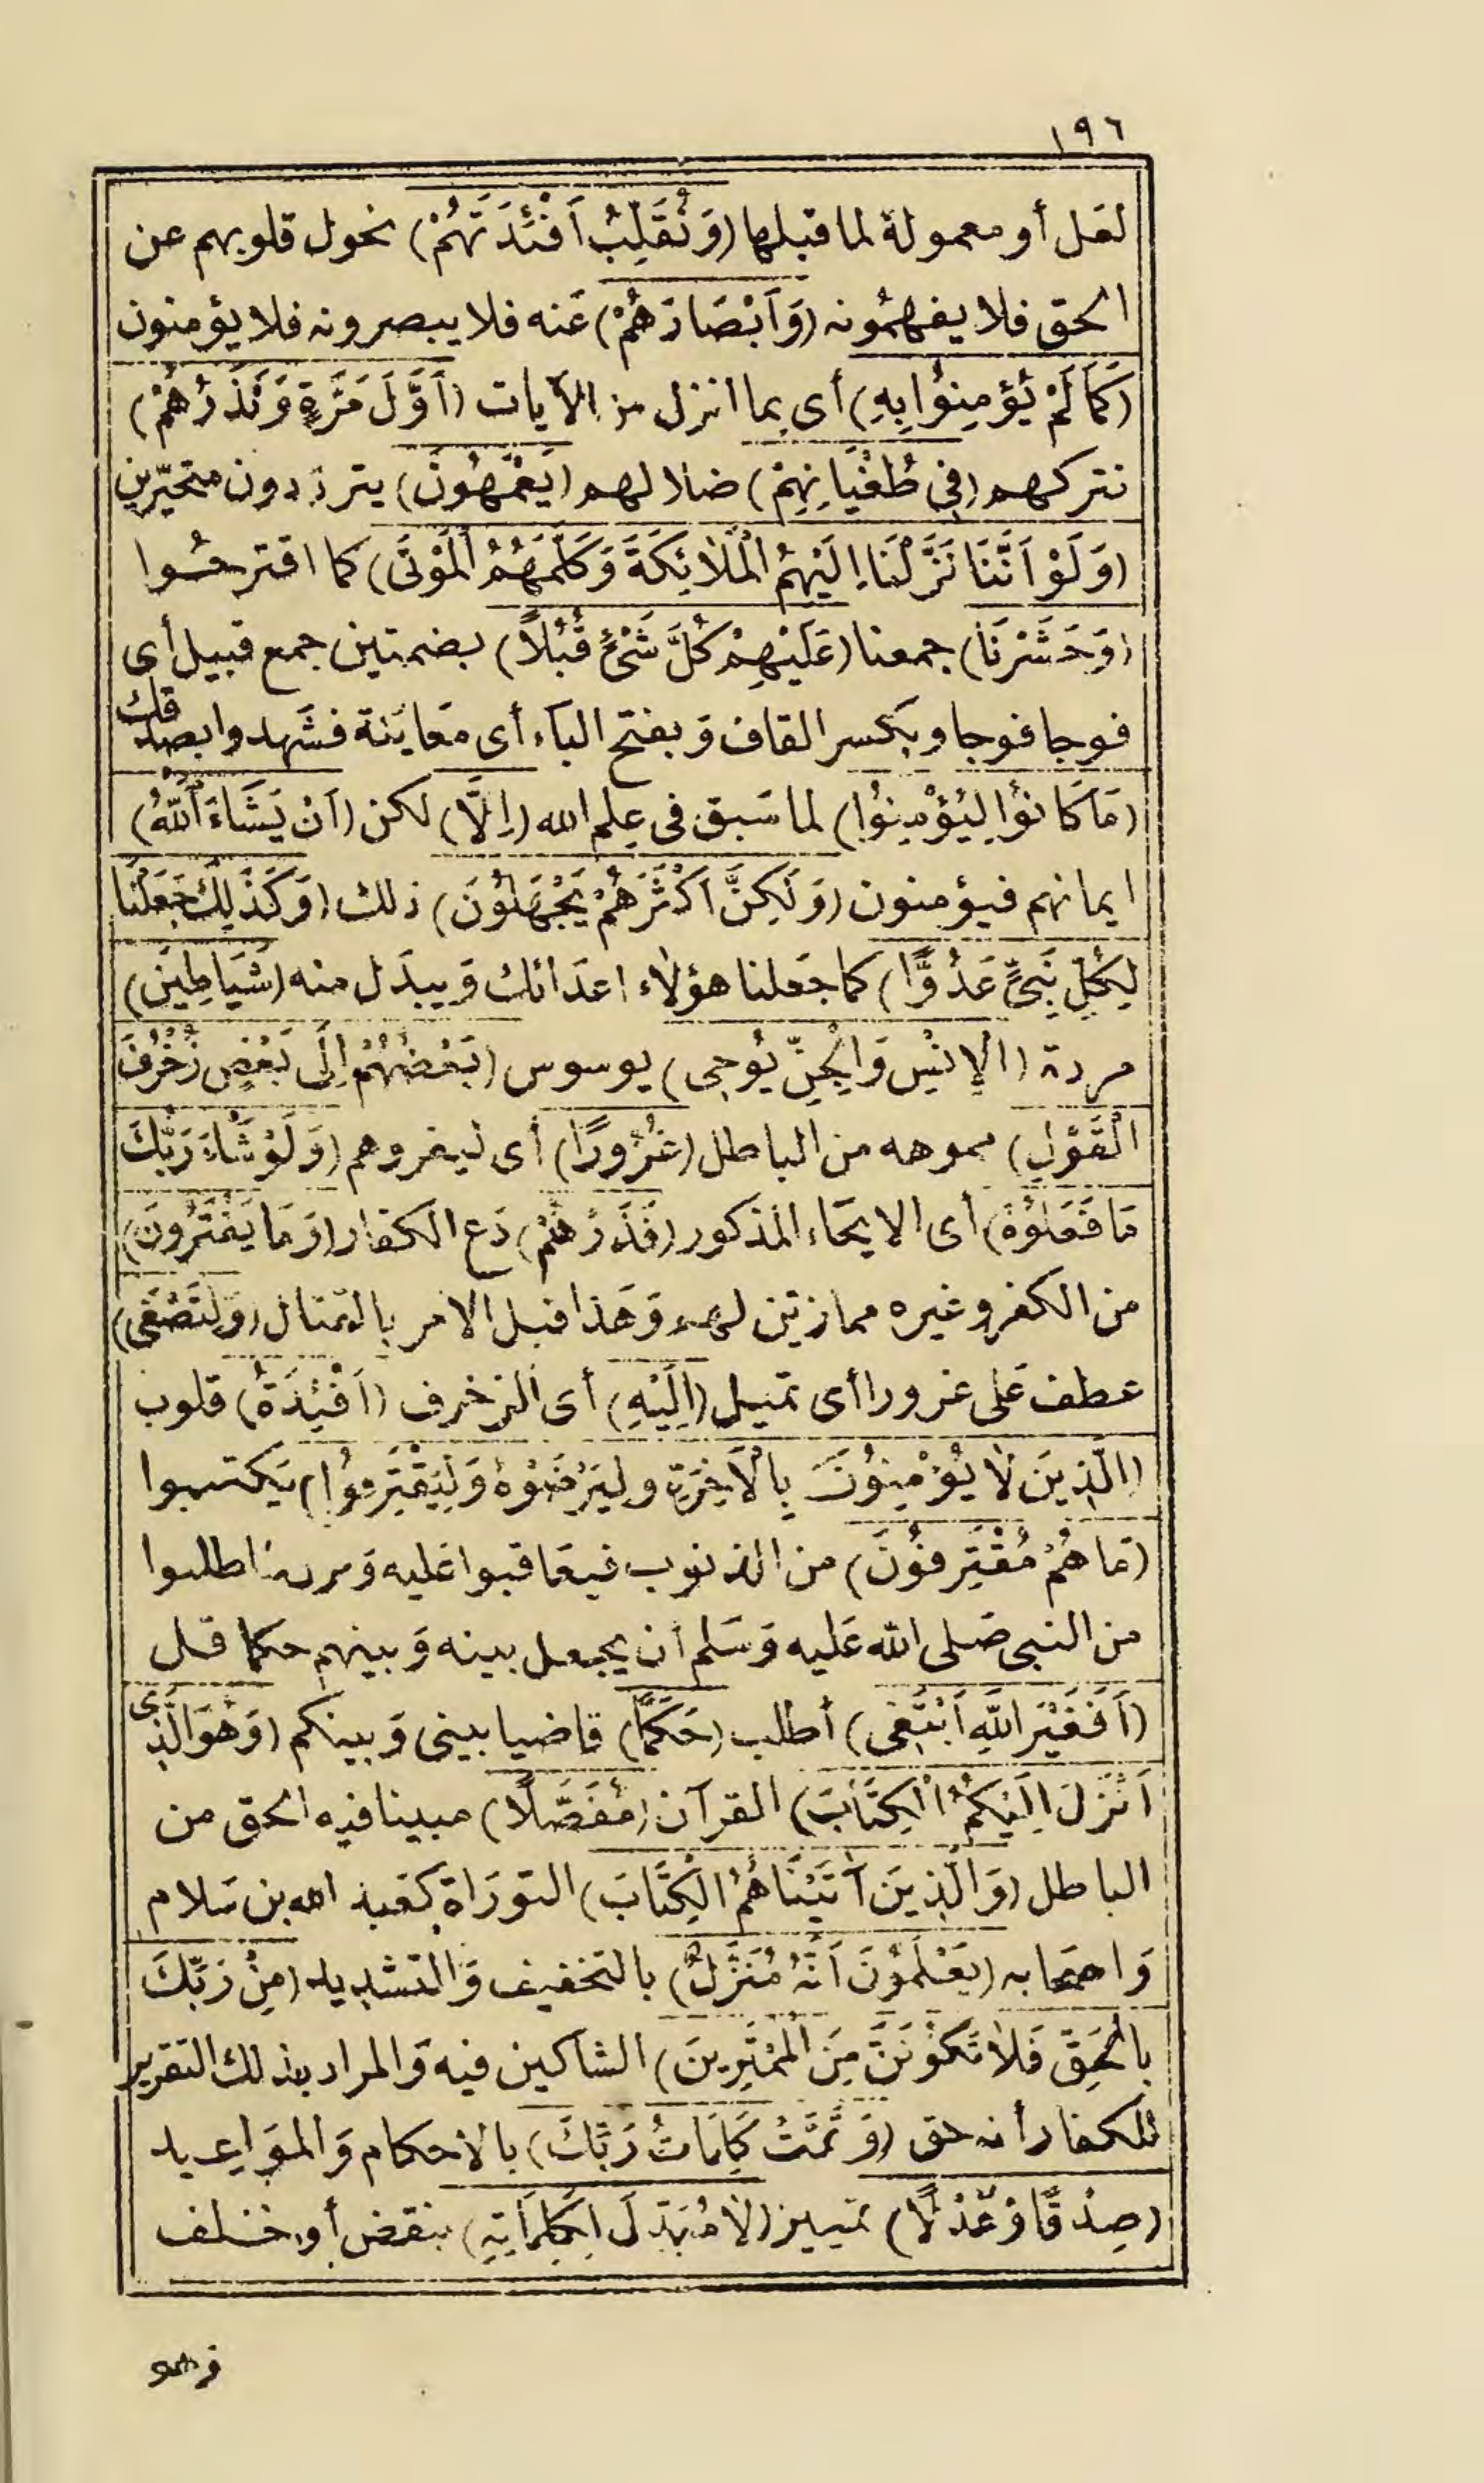 ١٩٦
لعل أو معمولة لما قبلها (وَنُقَلِّبُ أَفْئِدَتَهُمْ) نحول قلوبهم عن
الحق فلا يفهمونه (وَأَبْصَارَهُمْ) عَنه فلا يبصرونه فلا يؤمنون
(كَمَا لَمْ يُؤْمِنُوا بِهِ) أى بما انزل من الآيات (أَوَّلَ مَرَّةٍ وَنَذَرُهُمْ)
نتركهم (فِى طُغْيَانِهِمْ) ضلالهم (يَعْمَهُونَ) يترددون متحيّرين
(وَلَوْ أَنَّنَا نَزَّلْنَا إِلَيْهِمُ الْمَلَائِكَةَ وَكَلَّمَهُمُ الْمَوْتَى) كما اقترحُوا
(وَحَشَرْنَا) جمعنا (عَلَيْهِمْ كُلَّ شَىْءٍ قُبُلًا) بضمتين جمع قبيل أى
فوجا فوجا وبكسر القاف وَبفتح الباء أى مَعايَنة فشَهدوا بصدقك
(مَا كَانُوا لِيُؤْمِنُوا) لما سَبق فى عِلم الله (إِلَّا) لكن (أَنْ يَشَاءَ اللَّهُ)
ايمانهم فيؤمنون (وَلَكِنَّ أَكْثَرَهُمْ يَجْهَلُونَ) ذلك (وَكَذَلِكَ جَعَلْنَا
لِكُلِّ نَبِىٍّ عَدُوًّا) كما جَعلنا هؤلاء اعدَائك وَيبدَل منه (شَيَاطِينَ)
مردة (الْإِنْسِ وَالْجِنِّ يُوحِى) يوسوس (بَعْضُهُمْ إِلَى بَعْضٍ زُخْرُفَ
الْقَوْلِ) مموهه من الباطل (غُرُورًا) أى ليغروهم (وَلَوْ شَاءَ رَبُّكَ
مَا فَعَلُوهُ) أى الايحَاء المذكور (فَذَرْهُمْ) دَع الكفار (وَمَا يَفْتَرُونَ)
من الكفر وغيره مما زين لهم وَهَذا قبل الامر بالقتال (وَلِتَصْغَى)
عطف عَلى غرورا أى تميل (إِلَيْهِ) أى الزخرف (أَفْئِدَةُ) قلوب
(الَّذِينَ لَا يُؤْمِنُونَ بِالْآخِرَةِ وَلِيَرْضَوْهُ وَلِيَقْتَرِفُوا) يَكتسبوا
(مَا هُمْ مُقْتَرِفُونَ) من الذنوب فيعَاقبوا عَليه وَنزل لما طلبوا
من النبى صَلى الله عَليه وَسَلم أن يجعل بينه وَبينهم حكما قل
(أَفَغَيْرَ اللَّهِ أَبْتَغِى) أطلب (حَكَمًا) قاضيا بينى وَبينكم (وَهُوَ الَّذِى
أَنْزَلَ إِلَيْكُمُ الْكِتَابَ) القرآن (مُفَصَّلًا) مبينا فيه الحق من
الباطل (وَالَّذِينَ آتَيْنَاهُمُ الْكِتَابَ) التورَاة كعَبد الله بن سَلام
وَاصحَابه (يَعْلَمُونَ أَنَّهُ مُنَزَّلٌ) بالتخفيف وَالتشديد (مِنْ رَبِّكَ
بِالْحَقِّ فَلَا تَكُونَنَّ مِنَ الْمُمْتَرِينَ) الشاكين فيه وَالمراد بذلك التقرير
للكفار أنه حق (وَتَمَّتْ كَلِمَاتُ رَبِّكَ) بالاحكام وَالموَاعيد
(صِدْقًا وَعَدْلًا) تمييز (لَا مُبَدِّلَ لِكَلِمَاتِهِ) بنقض أو خلف